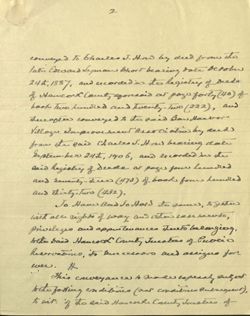 2
conveyed to Charles J. Hurd by deed from the
late Edward Lyman Short bearing date October
24th, 1887, and recorded in the Registry of Deeds
of Hancock County aforesaid at page forty (40) of
book two hundred and twenty-two (222), and
thereafter conveyed to the said Bar Harbor
Village Improvement Association by deed
from the said Charles J. Hurd bearing date
September 24th, 1906, and recorded in the
said registry of deeds at page four hundred
and seventy three (473) of book four hundred
and thirty-two (432).
To Have And To Hold the same, together
with all rights of way and other easements,
privileges and appurtenances thereto belonging,
to the said Hancock County Trustees of Public
Reservations, its successors and assigns for
ever.
This conveyance is made expressly subject
to the following conditions (and conditions subsequent),
to wit: if the said Hancock County Trustees of